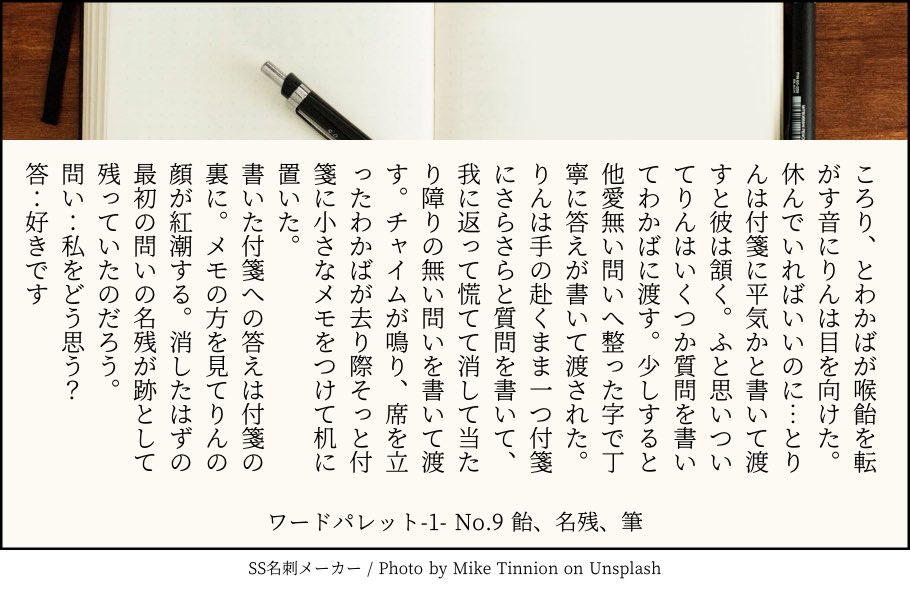 ころり、とわかばが喉飴を転
がす音にりんは目を向けた。
休んでいればいいのに…とり
んは付箋に平気かと書いて渡
すと彼は頷く。ふと思いつい
てりんはいくつか質問を書い
てわかばに渡す。少しすると
他愛無い問いへ整った字で丁
寧に答えが書いて渡された。
りんは手の赴くまま一つ付箋
にさらさらと質問を書いて、
我に返って慌てて消して当た
り障りの無い問いを書いて渡
す。チャイムが鳴り、席を立
ったわかばが去り際そっと付
箋に小さなメモをつけて机に
置いた。
書いた付箋への答えは付箋の
裏に。メモの方を見てりんの
顔が紅潮する。消したはずの
最初の問いの名残が跡として
残っていたのだろう。
問い：私をどう思う？
答：好きです
ワードパレット-1- No.9 飴、名残、筆
SS名刺メーカー / Photo by Mike Tinnion on Unsplash